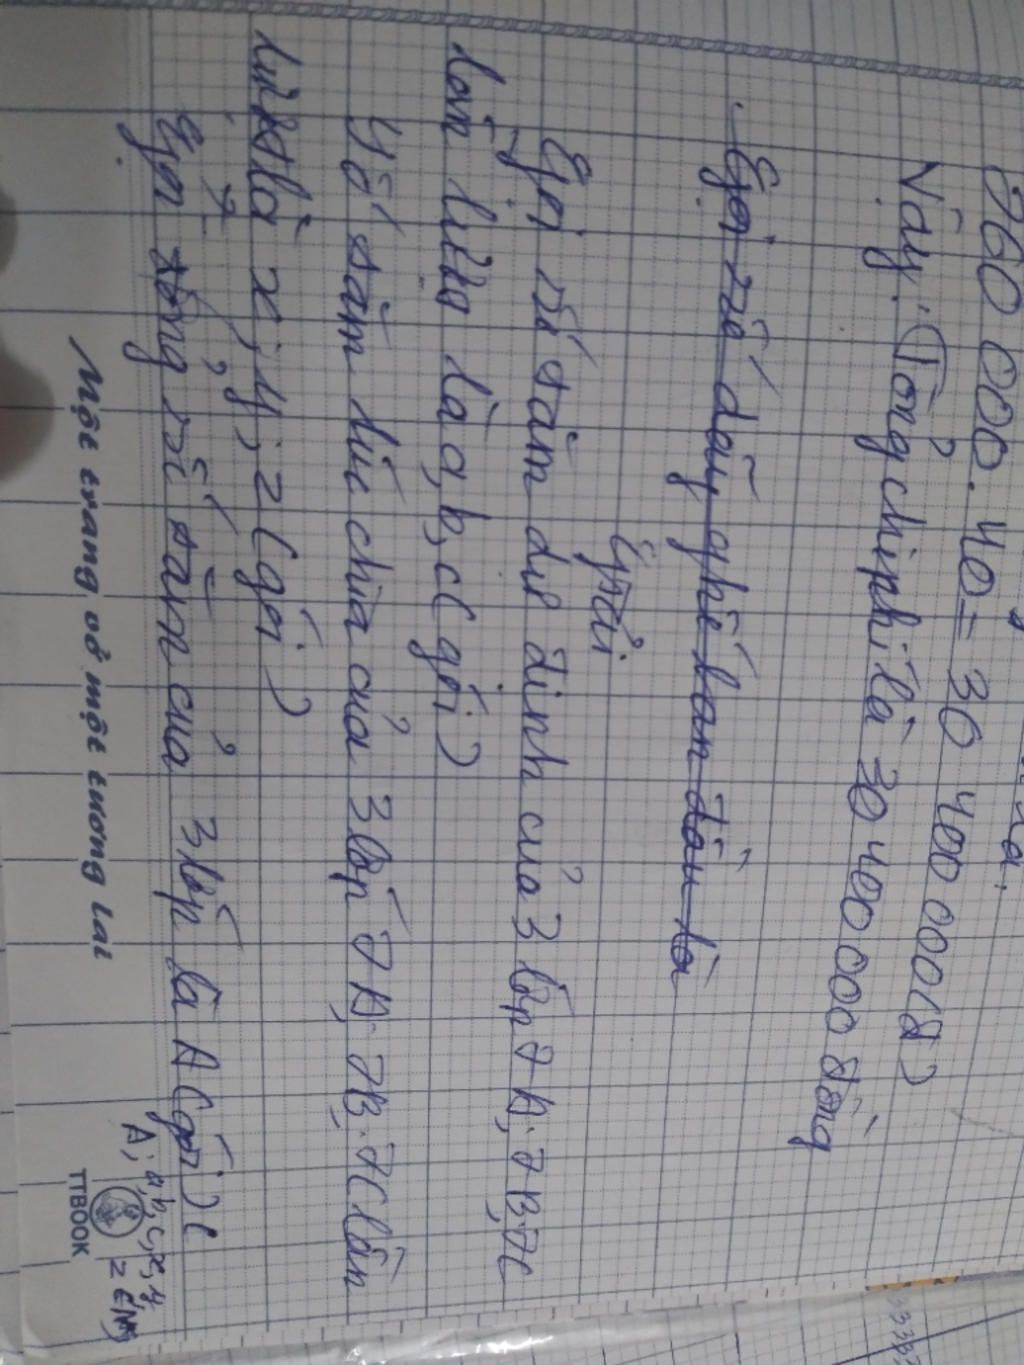 760 000. 40 = 30 400 000(đ)
Vậy. Tổng chi phí là 30 400 000 đồng
Gọi số dãy ghế ban đầu là
Giải
Gọi số tăm dự định của 3 lớp 7A; 7B; 7C
lần lượt là a, b, c (gói)
Số tăm lúc chia của 3 lớp 7A; 7B; 7C lần
lượt là x; y; z (gói)
Gọi tổng số tăm của 3 lớp là A (gói) (
A; a, b, c, x, y,
z ∈ N)
Một trang vở một tương lai
TTBOOK